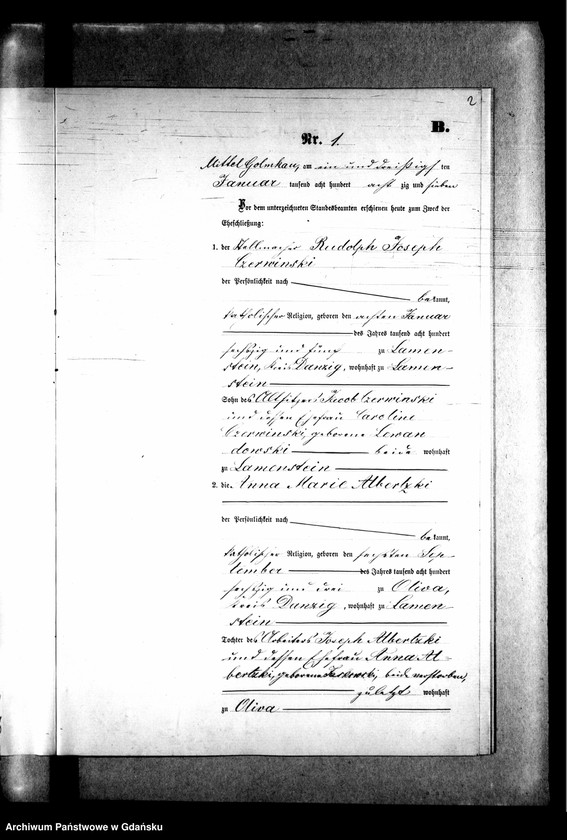 2
B.
Nr. 1.
Mittel Golmkau, am ein und dreißigsten
Januar tausend acht hundert acht zig und sieben
Vor dem unterzeichneten Standesbeamten erschienen heute zum Zweck der
Eheschließung:
1. der Stellmacher Rudolph Joseph
Czerwinski
der Persönlichkeit nach
bekannt,
katholischer Religion, geboren den achten Januar
des Jahres tausend acht hundert
sechszig und fünf zu Lamen-
stein, Kreis Danzig, wohnhaft zu Lamen-
stein
Sohn des Altsitzers Jacob Czerwinski
und dessen Ehefrau Caroline
Czerwinski, geborene Lewan
dowski beide wohnhaft
zu Lamenstein
2. die Anna Marie Albertzki
der Persönlichkeit nach
bekannt,
katholischer Religion, geboren den sechsten Sep-
tember des Jahres tausend acht hundert
sechszig und drei zu Oliva,
Kreis Danzig, wohnhaft zu Lamen-
stein
Tochter des Arbeiters Joseph Albertzki
und dessen Ehefrau Anna Al-
bertzki, geborene beide verstorben,
zuletzt wohnhaft
zu Oliva
Archiwum Państwowe w Gdańsku